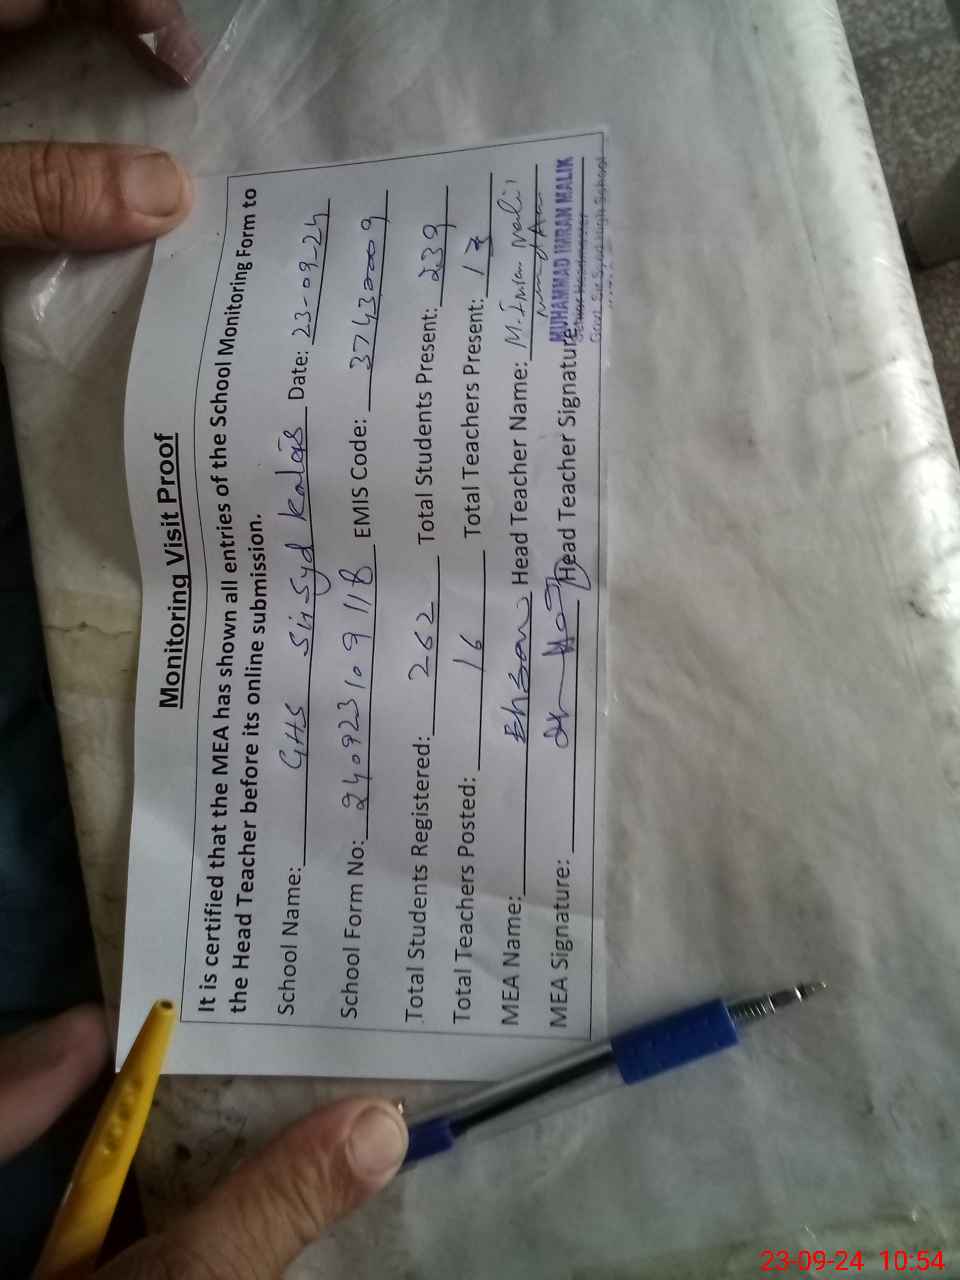 Monitoring Visit Proof
It is certified that the MEA has shown all entries of the School Monitoring Form to
the Head Teacher before its online submission.
School Name: GHS Sir Syed Date: 23-09-24
School Form No: 240923109118 EMIS Code: 37430009
Total Students Registered: 262 Total Students Present: 239
Total Teachers Posted: 16 Total Teachers Present:
MEA Name: Ehsan Head Teacher Name: M. Imran Malik
MEA Signature: Head Teacher Signature:
MUHAMMAD IMRAN MALIK
Senior Headmaster
Govt. Sir Syed High School
23-09-24 10:54